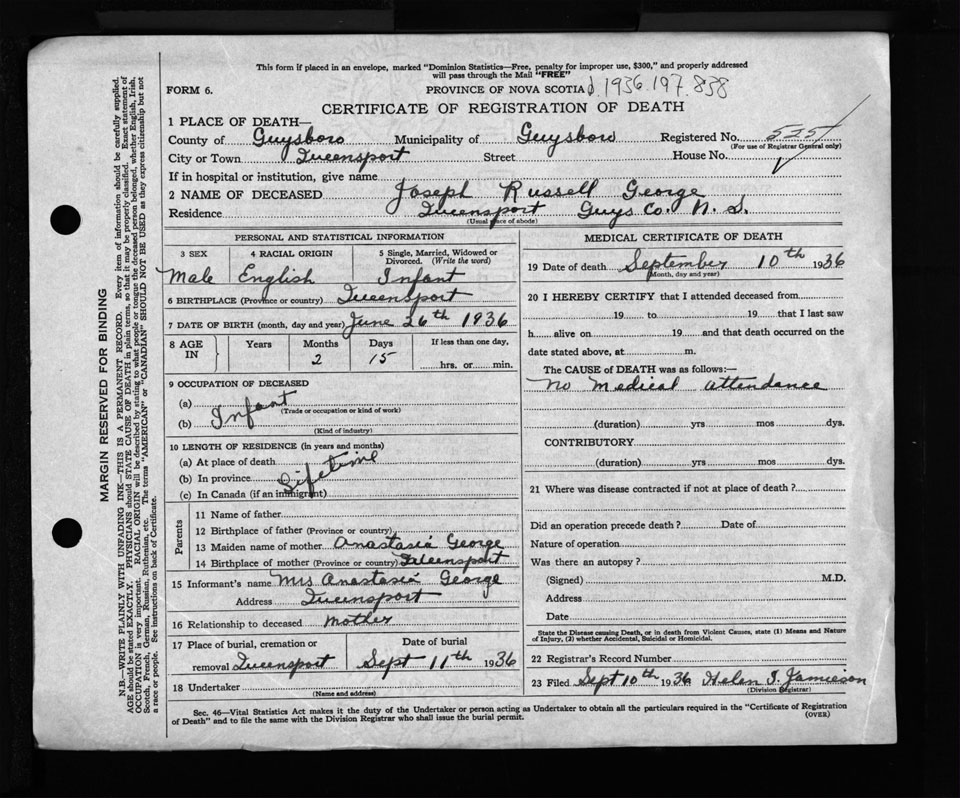 This form if placed in an envelope, marked "Dominion Statistics—Free, penalty for improper use, $300," and properly addressed
will pass through the Mail "FREE"
FORM 6.
PROVINCE OF NOVA SCOTIA d.1936.197.838
CERTIFICATE OF REGISTRATION OF DEATH
1 PLACE OF DEATH—
County of Guysboro Municipality of Guysboro Registered No. 525
(For use of Registrar General only)
City or Town Queensport Street House No.
If in hospital or institution, give name
2 NAME OF DECEASED Joseph Russell George
Residence Queensport Guys Co. N. S.
(Usual place of abode)
PERSONAL AND STATISTICAL INFORMATION
3 SEX 4 RACIAL ORIGIN 5 Single, Married, Widowed or
Divorced. (Write the word)
Male English Infant
6 BIRTHPLACE (Province or country) Queensport
7 DATE OF BIRTH (month, day and year) June 26th 1936
8 AGE IN Years Months Days If less than one day,
2 15 hrs. or min.
9 OCCUPATION OF DECEASED
(a)
(Trade or occupation or kind of work)
(b) Infant
(Kind of industry)
10 LENGTH OF RESIDENCE (in years and months)
(a) At place of death
(b) In province Lifetime
(c) In Canada (if an immigrant)
Parents
11 Name of father
12 Birthplace of father (Province or country)
13 Maiden name of mother Anastasia George
14 Birthplace of mother (Province or country) Queensport
15 Informant's name Mrs Anastasia George
Address Queensport
16 Relationship to deceased Mother
17 Place of burial, cremation or Date of burial
removal Queensport Sept 11th 1936
18 Undertaker
(Name and address)
MEDICAL CERTIFICATE OF DEATH
19 Date of death September 10th 1936
(Month, day and year)
20 I HEREBY CERTIFY that I attended deceased from
19 to 19 that I last saw
h alive on 19 and that death occurred on the
date stated above, at m.
The CAUSE of DEATH was as follows:—
No Medical attendance
(duration) yrs mos dys.
CONTRIBUTORY
(duration) yrs mos dys.
21 Where was disease contracted if not at place of death?
Did an operation precede death? Date of
Nature of operation
Was there an autopsy?
(Signed) M.D.
Address
Date
State the Disease causing Death, or in death from Violent Causes, state (1) Means and Nature
of Injury, (2) whether Accidental, Suicidal or Homicidal.
22 Registrar's Record Number
23 Filed Sept 10th 1936 Helen I. Jamieson
(Division Registrar)
Sec. 46—Vital Statistics Act makes it the duty of the Undertaker or person acting as Undertaker to obtain all the particulars required in the "Certificate of Registration
of Death" and to file the same with the Division Registrar who shall issue the burial permit.
(OVER)
MARGIN RESERVED FOR BINDING
N.B.—WRITE PLAINLY WITH UNFADING INK—THIS IS A PERMANENT RECORD. Every item of information should be carefully supplied.
AGE should be stated EXACTLY. PHYSICIANS should STATE CAUSE OF DEATH in plain terms, so that it may be properly classified. Exact statement of
OCCUPATION is very important. RACIAL ORIGIN will be described by stating to what people or tongue the deceased person belonged, whether English, Irish,
Scotch, French, German, Russian, Ruthenian, etc. The terms "AMERICAN" or "CANADIAN" SHOULD NOT BE USED as they express citizenship but not
a race or people. See instructions on back of Certificate.